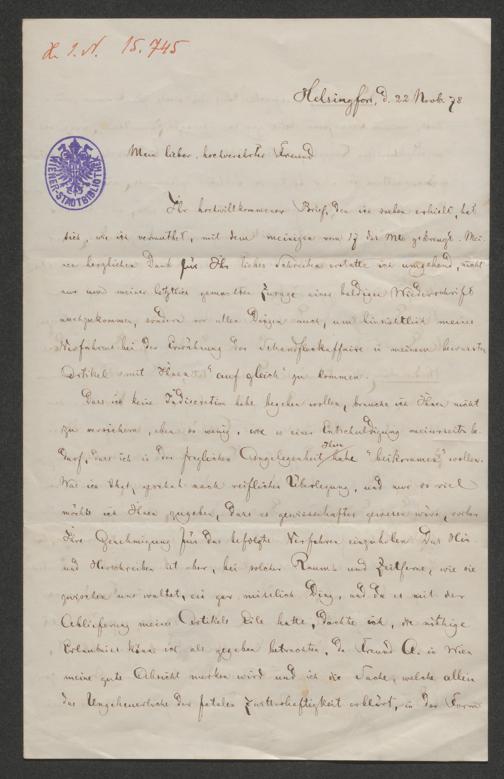 H. I. N. 15.745
WIENER-STADTBIBLIOTHEK
Helsingfors, d. 22 Novbr 78
Mein lieber, hochverehrter Freund
Ihr hochwillkommener Brief, den ich soeben erhielt, hat
sich, wie ich vermuthet, mit dem meinigen vom 17 des Mts. gekreuzt. Mei-
nen herzlichen Dank für Ihr liebes Schreiben erstatte ich umgehend, nicht
nur um meiner letzthin gemachten Zusage eines baldigen Wiederschrift
nachzukommen, sondern vor allen Dingen auch, um hinsichtlich meines
Verfahrens bei der Erwähnung der in meinem bewussten
Artikel mit Ihnen "auf gleich" zu kommen.
Dass ich keine Indiscretion habe begehen wollen, brauche ich Ihnen nicht
zu versichern, eben so wenig, wie es einer Entschuldigung meinerseits be-
darf, dass ich in der fraglichen Angelegenheit Ihnen habe wollen.
Was ich that, geschah nach reiflicher Überlegung, und nur so viel
möchte ich Ihnen zugeben, dass es gewissenhafter gewesen wäre, vorher
Ihre Genehmigung für das befolgte Verfahren einzuholen. Das Hin
und Herschreiben ist aber, bei solcher Raum- und Zeitferne, wie sie
zwischen uns waltet, ein gar misslich Ding, und da es mit der
Ablieferung meines Artikels Eile hatte, dachte ich, die nöthige
Erlaubniss könne ich als gegeben betrachten, da Freund A. in Wien
meine gute Absicht merken wird und ich die Sache, welche allein
das Ungeheuerliche der fatalen erklärt, in der Form